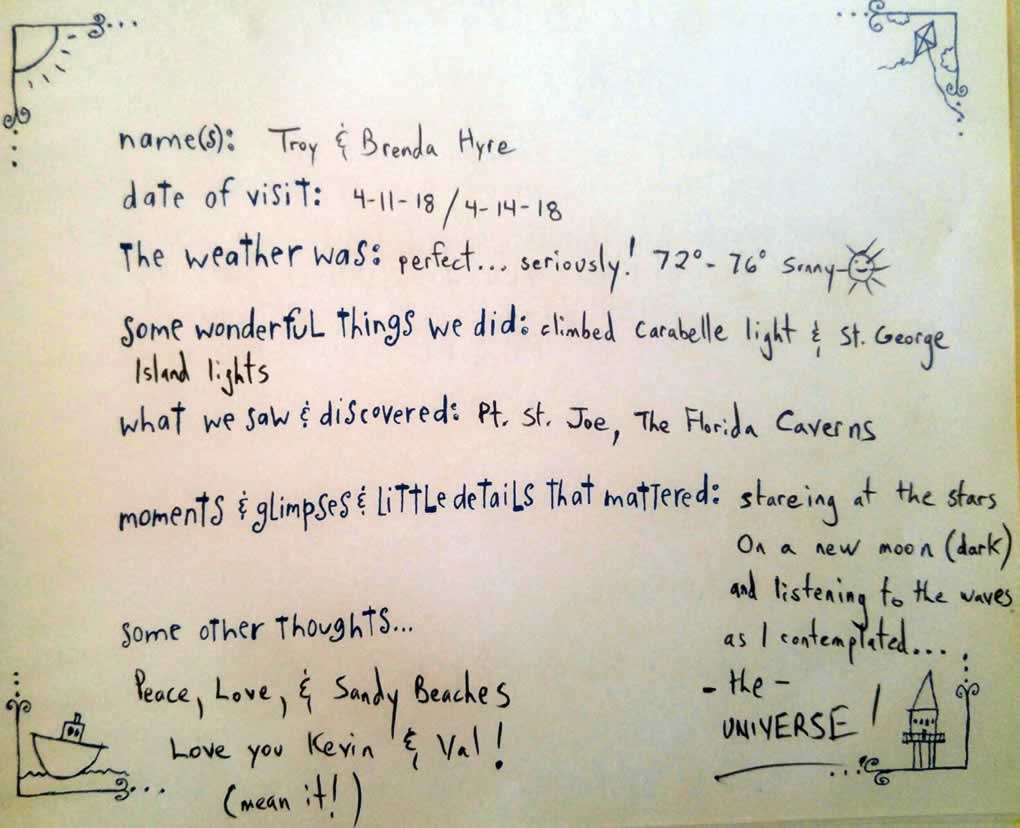 name(s): Troy & Brenda Hyre
date of visit: 4-11-18 / 4-14-18
The weather was: perfect... seriously! 72° - 76° Sunny-
some wonderful things we did: climbed Carabelle light & St. George
Island lights
what we saw & discovered: Pt. St. Joe, The Florida Caverns
moments & glimpses & little details that mattered: stareing at the stars
On a new moon (dark)
and listening to the waves
as I contemplated...
- the -
UNIVERSE!
some other thoughts...
Peace, Love, & Sandy Beaches
Love you Kevin & Val!
(mean it!)